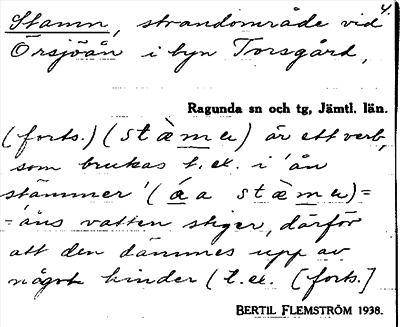 4.
Stamn, strandområde vid
Örsjöån i byn Torsgård,
Ragunda sn och tg, Jämtl. län.
(forts.) (stæ̀mer) är ett verb,
som brukas t.ex. i 'ån
stämmer' (áa stæ̀mer)=
=åns vatten stiger, därför
att den dämmes upp av
något hinder (t.ex. [forts.]
BERTIL FLEMSTRÖM 1938.